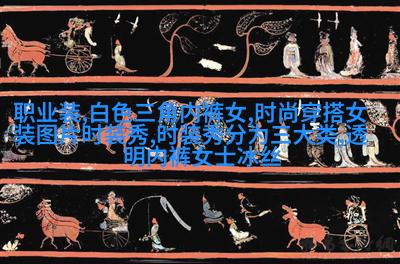 职业装,白色三角内裤女,时尚穿搭女
装图片时装秀,时装秀分为三大类,透
明内裤女士冰丝